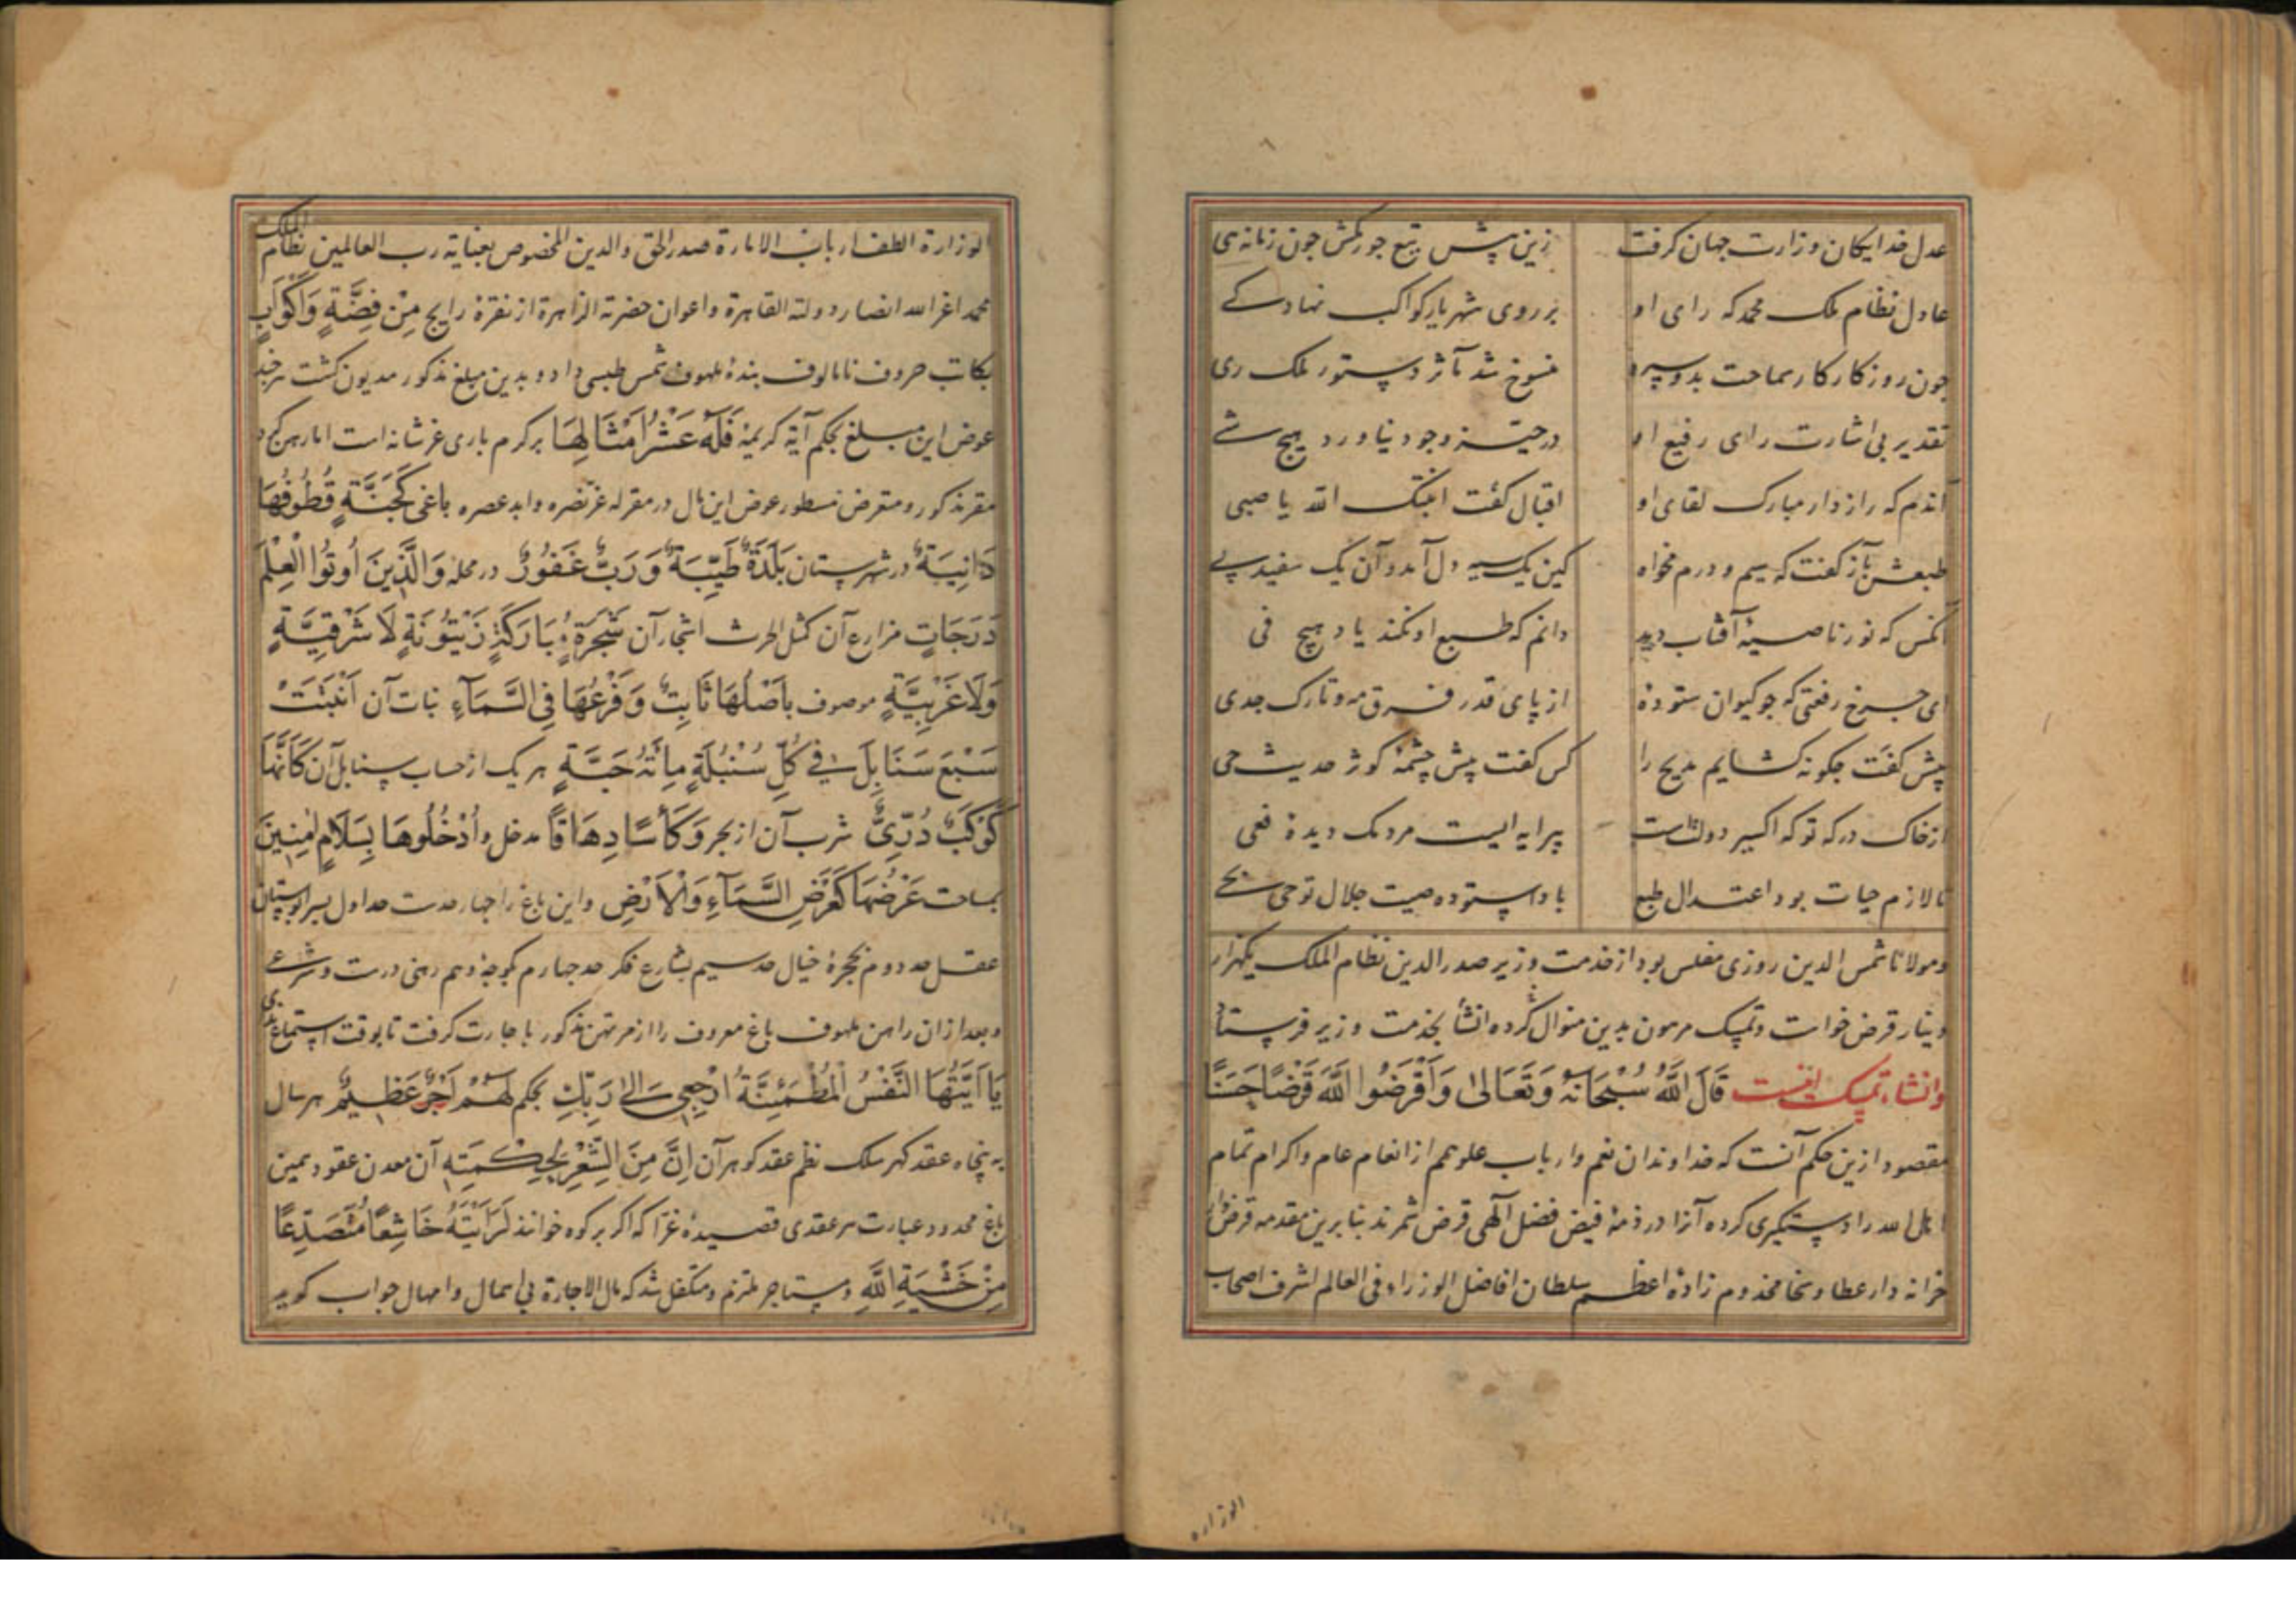 عدل خدایکان وزارت جهان کرفت زین پیش تیغ جور مکش چون زمانه هی
عادل نظام ملک محمد که رای او بر روی شهریار کواکب نهاد کے
چون روزکار کار سماحت بدو سپرد منسوخ شد مآثر دستور ملک ری
تقدیر بی اشارت رای رفیع او در حیز وجود نیاورد هیچ شے
آندم که راز دار مبارک لقای او اقبال کفت انبتک الله یا صبی
طبعش بآز کفت که سیم و درم مخواه کین یک سیه دل آمد و آن یک سفید پے
آنکس که نور ناصیۀ آفتاب دید دانم که طبع او نکند یاد هیچ فی
ای چرخ رفعتی که چو کیوان ستوده از پای قدر فرق مه و تارک جدی
پیش کفت چکونه کشایم مدیح را کس کفت پیش چشمۀ کوثر حدیث حی
از خاک درکه تو که اکسیر دولتست پیرایه ایست مردمک دیده فعی
تا لازم حیات بود اعتدال طبع باد استوده صیت جلال تو حی بحے
و مولانا شمس الدین روزی مفلس بود از خدمت وزیر صدر الدین نظام الملک یکهزار
دینار قرض خواست و تمسک مرهون بدین منوال انشا کرده بخدمت وزیر فرستاد
وانشاء تمسک اینست قَالَ اللّٰهُ سُبْحَانَهُ وَتَعَالىٰ وَاَقْرَضُوا اللّٰهَ قَرْضًا حَسَنًا
مقصود ازین حکم آنست که خداوندان نعم و ارباب علو همم از انعام عام و اکرام تمام
اهل الله را دستکیری کرده آنرا در ذمۀ فیض فضل آلهی قرض شمرند بنابرین مقدمه قرض
خزانه دار عطا و سخا مخدوم زادۀ اعظم سلطان افاضل الوزراء فی العالم اشرف اصحاب
الوزاره
الوزارة الطف ارباب الامارة صدر الحق والدین المخصوص بعنایة رب العالمین نظام الملک
محمد اعز الله انصار دولته القاهرة و اعوان حضرته الزاهرة از نقرۀ رایج مِنْ فِضَّةٍ وَاَكْوَابٍ
بکاتب حروف نامالوف بندۀ ملهوف شمس طبسی داد و بدین مبلغ مذکور مدیون کشت هرچند
عوض این مبلغ بحکم آیۀ کریمه فَلَهُ عَشْرُ اَمْثَالِهَا بر کرم باری عز شانه است اما رهن کرد
مقر مذکور و مقرض مسطور عوض این مال در مقر له عز نصره و ابد عصره باغی كَجَنَّةٍ قُطُوفُهَا
دَانِيَةٌ در شهرستان بَلْدَةٌ طَيِّبَةٌ وَرَبٌّ غَفُورٌ در محله وَالَّذِينَ اُوتُوا الْعِلْمَ
دَرَجَاتٍ مزارع آن کمثل الحرث اشجار آن شَجَرَةٍ مُبَارَكَةٍ زَيْتُونَةٍ لَا شَرْقِيَّةٍ
وَلَا غَرْبِيَّةٍ موصوف باَصْلُهَا ثَابِتٌ وَفَرْعُهَا فِي السَّمَاءِ نبات آن اَنْبَتَتْ
سَبْعَ سَنَابِلَ فِي كُلِّ سُنْبُلَةٍ مِائَةُ حَبَّةٍ هر یک از حساب سنابل آن كَاَنَّهَا
كَوْكَبٌ دُرِّيٌّ شرب آن از بحر وَكَأْسًا دِهَاقًا مدخل و اُدْخُلُوهَا بِسَلَامٍ اٰمِنِينَ
بمساحت عَرْضُهَا كَعَرْضِ السَّمَاءِ وَالْاَرْضِ و این باغ را چهار حدست حد اول بسرابوستان
عقل حد دوم بحجرۀ خیال حد سیم بشارع فکر حد چهارم بکوچۀ وهم رهنی درست و شرعی
و بعد از ان راهن ملهوف باغ معروف را از مرتهن مذکور با جارت کرفت تا بوقت استماع ندای
يَا اَيَّتُهَا النَّفْسُ الْمُطْمَئِنَّةُ ارْجِعِي اِلٰى رَبِّكِ بحکم لَهُمْ اَجْرٌ عَظِيمٌ هر سال
به پنجاه عقد کهر سلک نظم عقد کوهر آن اِنَّ مِنَ الشِّعْرِ لَحِكْمَتِهِ آن معدن عقود یمین
باغ محدود عبارت هر عقدی قصیدۀ غرّا که اکر بر کوه خوانند لَرَاَيْتَهُ خَاشِعًا مُتَصَدِّعًا
مِنْ خَشْيَةِ اللّٰهِ و مستاجر ملتزم و متکفل شد که مال الاجارة بی اهمال و امهال جواب کوید